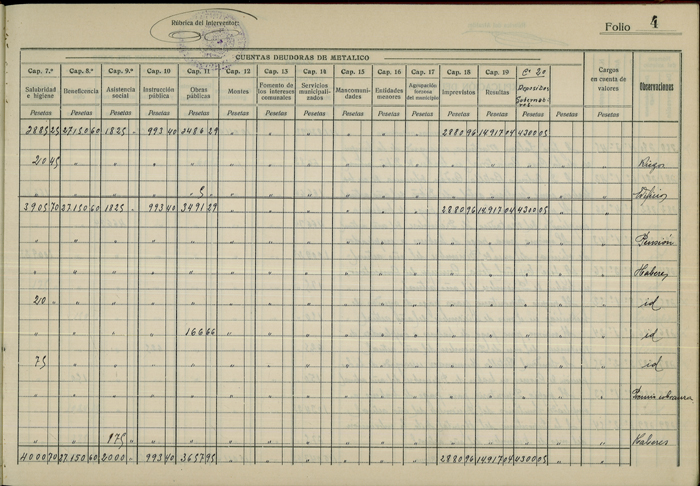 Rúbrica del Interventor:
Folio 4
CUENTAS DEUDORAS DE METALICO
Cap. 7.º Cap. 8.º Cap. 9.º Cap. 10 Cap. 11 Cap. 12 Cap. 13 Cap. 14 Cap. 15 Cap. 16 Cap. 17 Cap. 18 Cap. 19 Cª 20
Salubridad e higiene Beneficencia Asistencia social Instrucción pública Obras públicas Montes Fomento de los intereses comunales Servicios municipalizados Mancomunidades Entidades menores Agrupación forzosa del municipio Imprevistos Resultas Cargos en cuenta de valores Observaciones
Pesetas Pesetas Pesetas Pesetas Pesetas Pesetas Pesetas Pesetas Pesetas Pesetas Pesetas Pesetas Pesetas Pesetas Pesetas Pesetas
2885 25 27.150 60 1825 " 993 40 3486 29 " " " " " " 2880 96 14917 04 4300 05
20 45 " " " " " " " " " " " " "
" " " " 5 " " " " " " " " " "
3905 70 27.150 60 1825 " 993 40 3491 29 " " " " " " 2880 96 14917 04 4300 05 " "
" " " " " " " " " " " " " " " " Pensión
" " " " " " " " " " " " " " " " Haberes
20 " " " " " " " " " " " " " " " id
" " " " 166 66 " " " " " " " " " " " id
75 " " " " " " " " " " " " " " " id
" " " " " " " " " " " " " " " "
" " 175 " " " " " " " " " " " " " Haberes
4000 70 27.150 60 2000 " 993 40 3657 95 " " " " " " 2880 96 14917 04 4300 05 " "